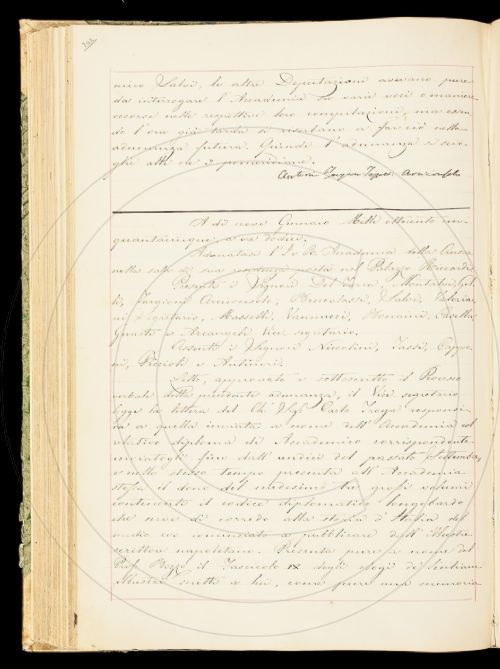 nino Salvi, le altre Deputazioni avevano pure
da interrogare l'Accademia su varie voci e maniere
occorse nelle respettive loro compilazioni, ma essen
do l'ora già tarda si riserbano a far ciò nella
adunanza futura. Quindi l'adunanza si scio-
glie alle ore 3 pomeridiane.
A dì nove Gennaio Mille ottocento cin-
quantacinque a ore dodici.
Adunatasi l'I. e R. Accademia della Crusca
nella sala di sua residenza posta nel Palazzo Riccardi.
Presenti i Signori Del Furia, Montalvi, Gel
li, Targioni Arciconsolo, Brucalassi, Salvi, Valoria
ni Segretario, Masselli, Vannucci, Bonaini, Casella,
Guasti e Arcangeli Vice segretario.
Assenti i Signori Niccolini, Tassi, Cappo
ni, Piccioli e Antinori.
Letto, approvato e sottoscritto il Processo
verbale della precedente adunanza, il Vice segretario
legge la lettera del Ch. Sig. Carlo Troya responsi
va a quella inviata a nome dell'Accademia col
relativo diploma di Accademico corrispondente
inviatogli fino dall'undici del passato Settembre,
e nello stesso tempo presenta all'Accademia
stessa il dono del medesimo tre grossi volumi
contenenti il codice diplomatico longobardo
che serve di corredo alla storia d'Italia del
medio evo cominciata a pubblicare dall'illustre
scrittore napolitano. Presenta pure a nome del
Prof. Rezzi il Fascicolo IX degli elogi di Lincei
illustri scritti a lui, come pure una memoria